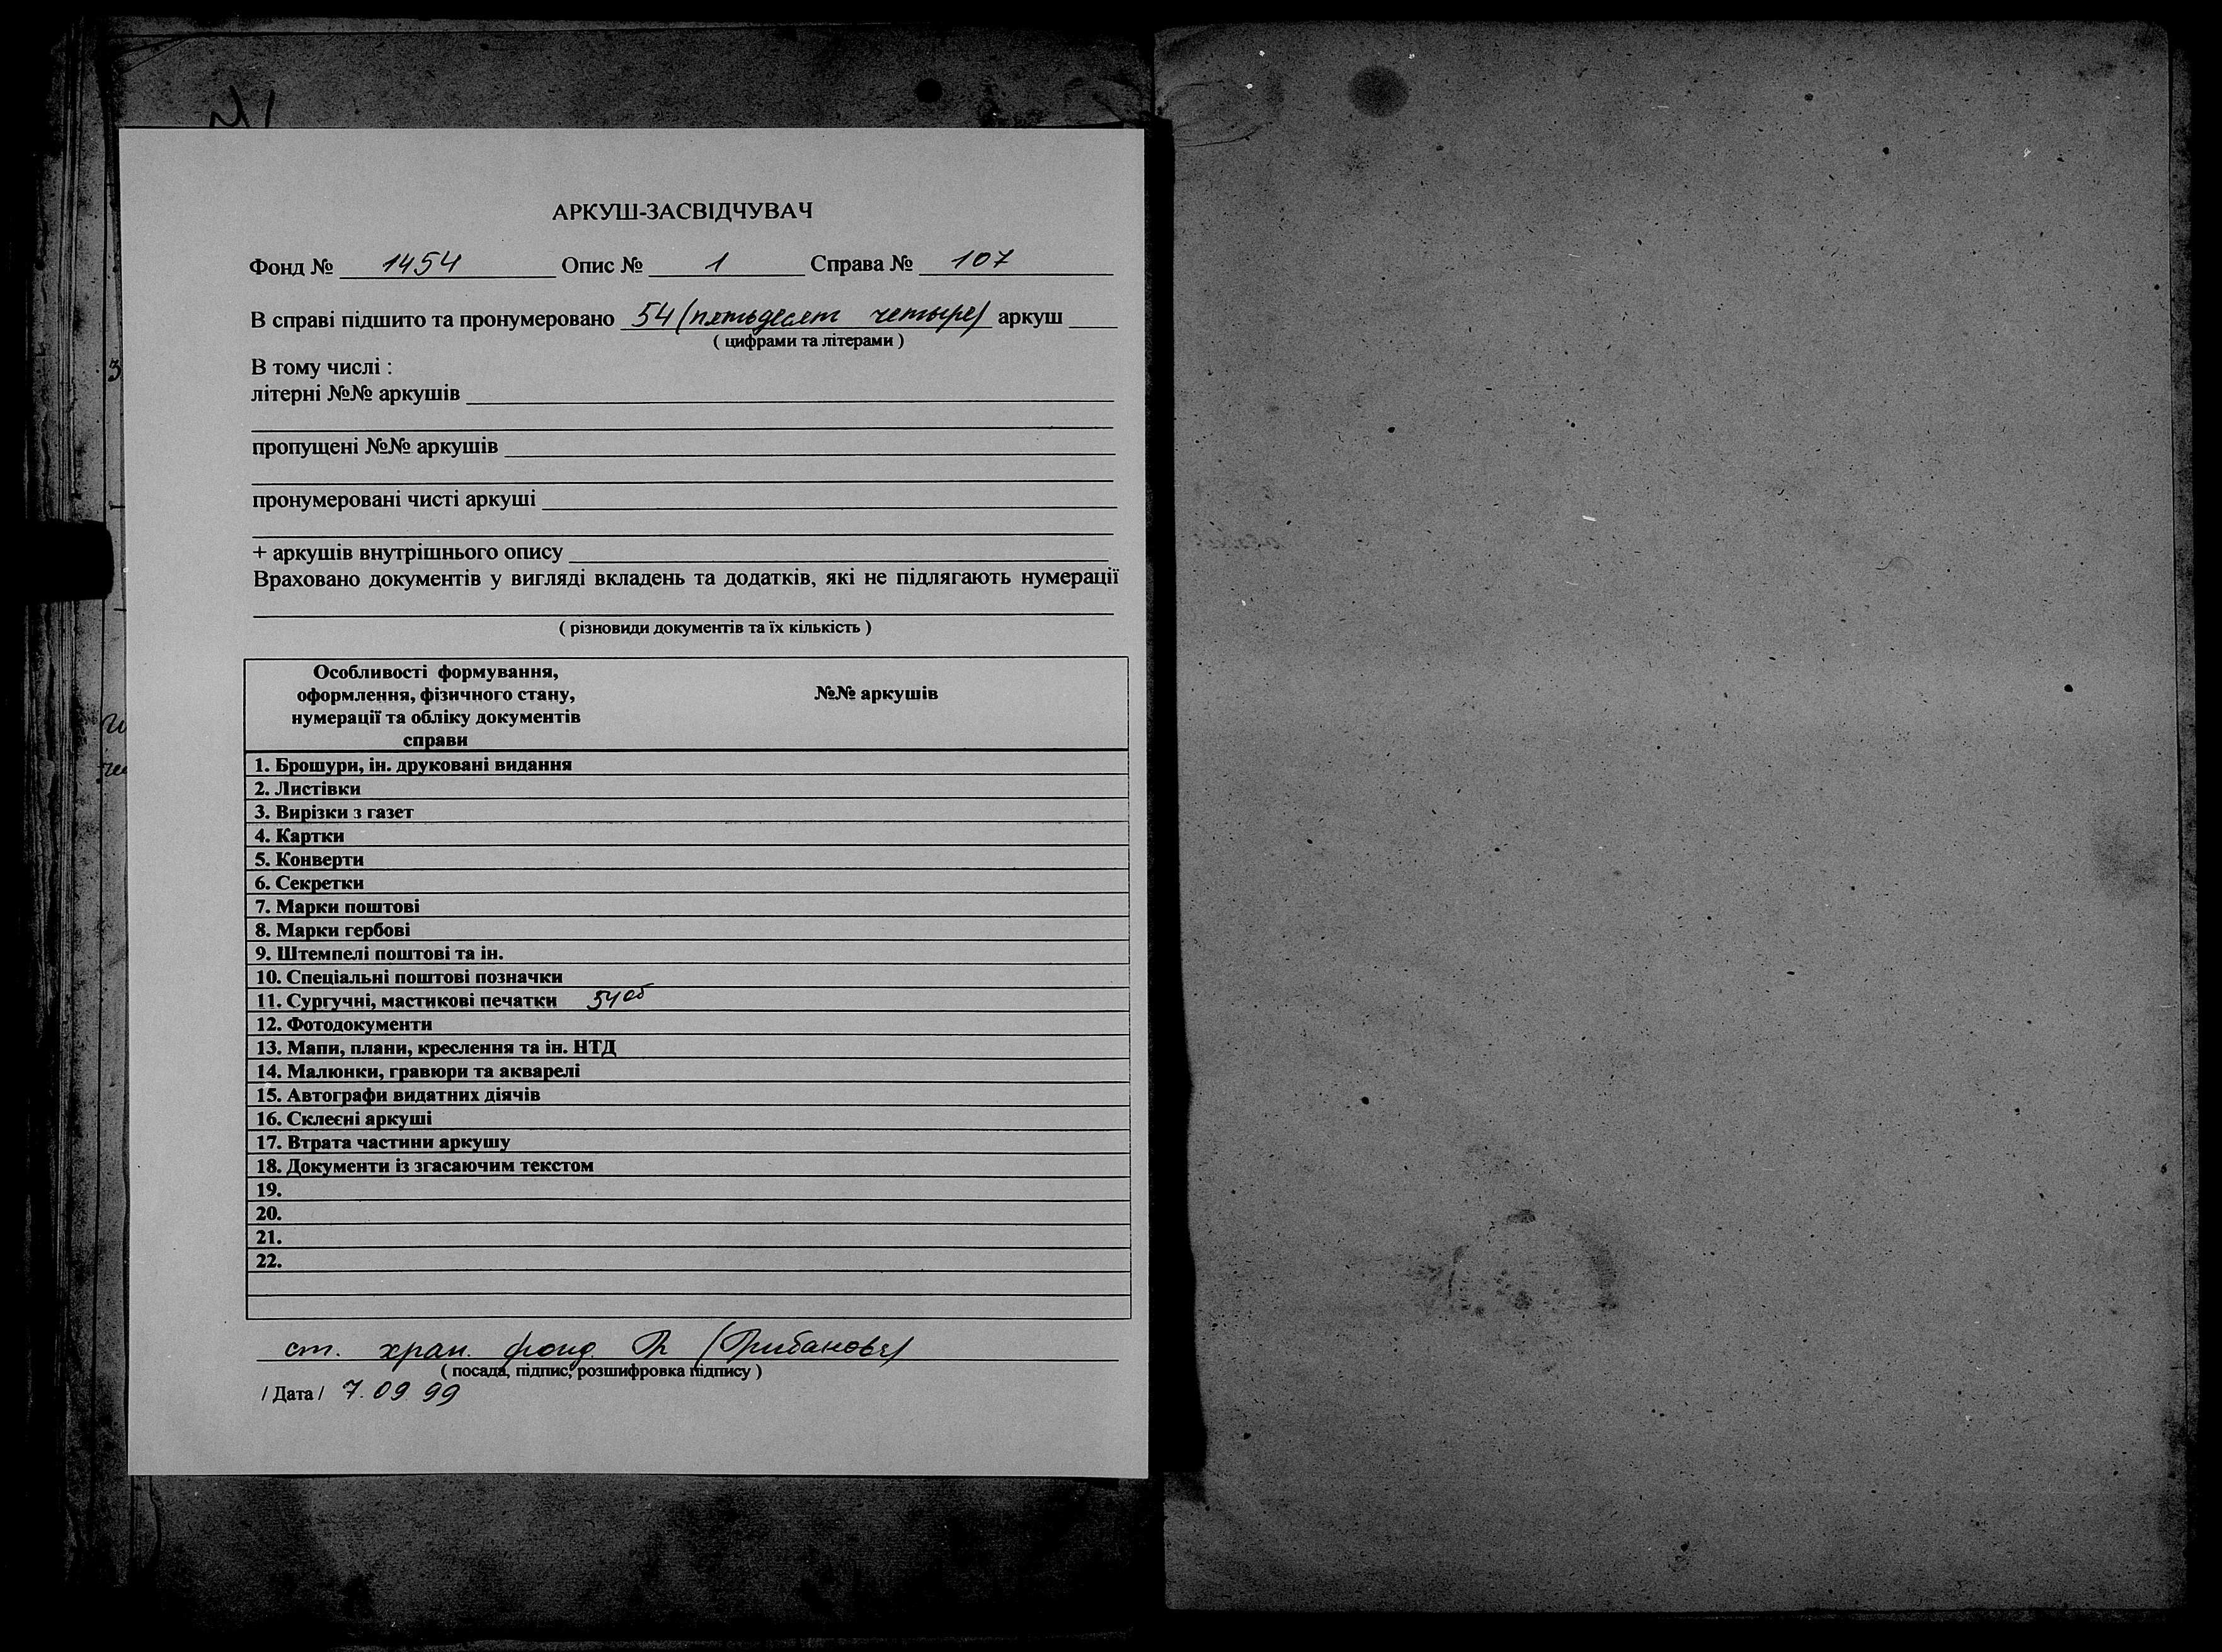 АРКУШ-ЗАСВІДЧУВАЧ
Фонд № 1454 Опис № 1 Справа № 107
В справі підшито та пронумеровано 54 (пятьдесят четыре) аркуш
( цифрами та літерами )
В тому числі :
літерні №№ аркушів
пропущені №№ аркушів
пронумеровані чисті аркуші
+ аркушів внутрішнього опису
Враховано документів у вигляді вкладень та додатків, які не підлягають нумерації
( різновиди документів та їх кількість )
Особливості формування,
оформлення, фізичного стану, №№ аркушів
нумерації та обліку документів
справи
1. Брошури, ін. друковані видання
2. Листівки
3. Вирізки з газет
4. Картки
5. Конверти
6. Секретки
7. Марки поштові
8. Марки гербові
9. Штемпелі поштові та ін.
10. Спеціальні поштові позначки
11. Сургучні, мастикові печатки 54об
12. Фотодокументи
13. Мапи, плани, креслення та ін. НТД
14. Малюнки, гравюри та акварелі
15. Автографи видатних діячів
16. Склеєні аркуші
17. Втрата частини аркушу
18. Документи із згасаючим текстом
19.
20.
21.
22.
ст. хран. фонд.
( посада, підпис, розшифровка підпису )
/ Дата / 7.09.99